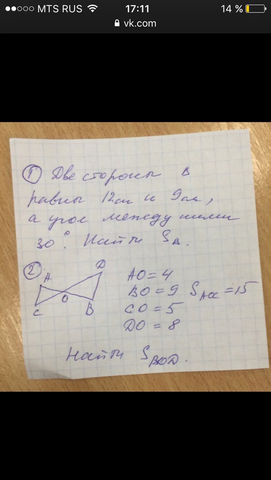 MTS RUS 17:11 14 %
vk.com
① Две стороны в
равны 12см и 9см,
а угол между ними
30°. Найти S△.
②
D
A
O
C B
AO = 4
BO = 9 S AOC = 15
CO = 5
DO = 8
Найти S BOD.